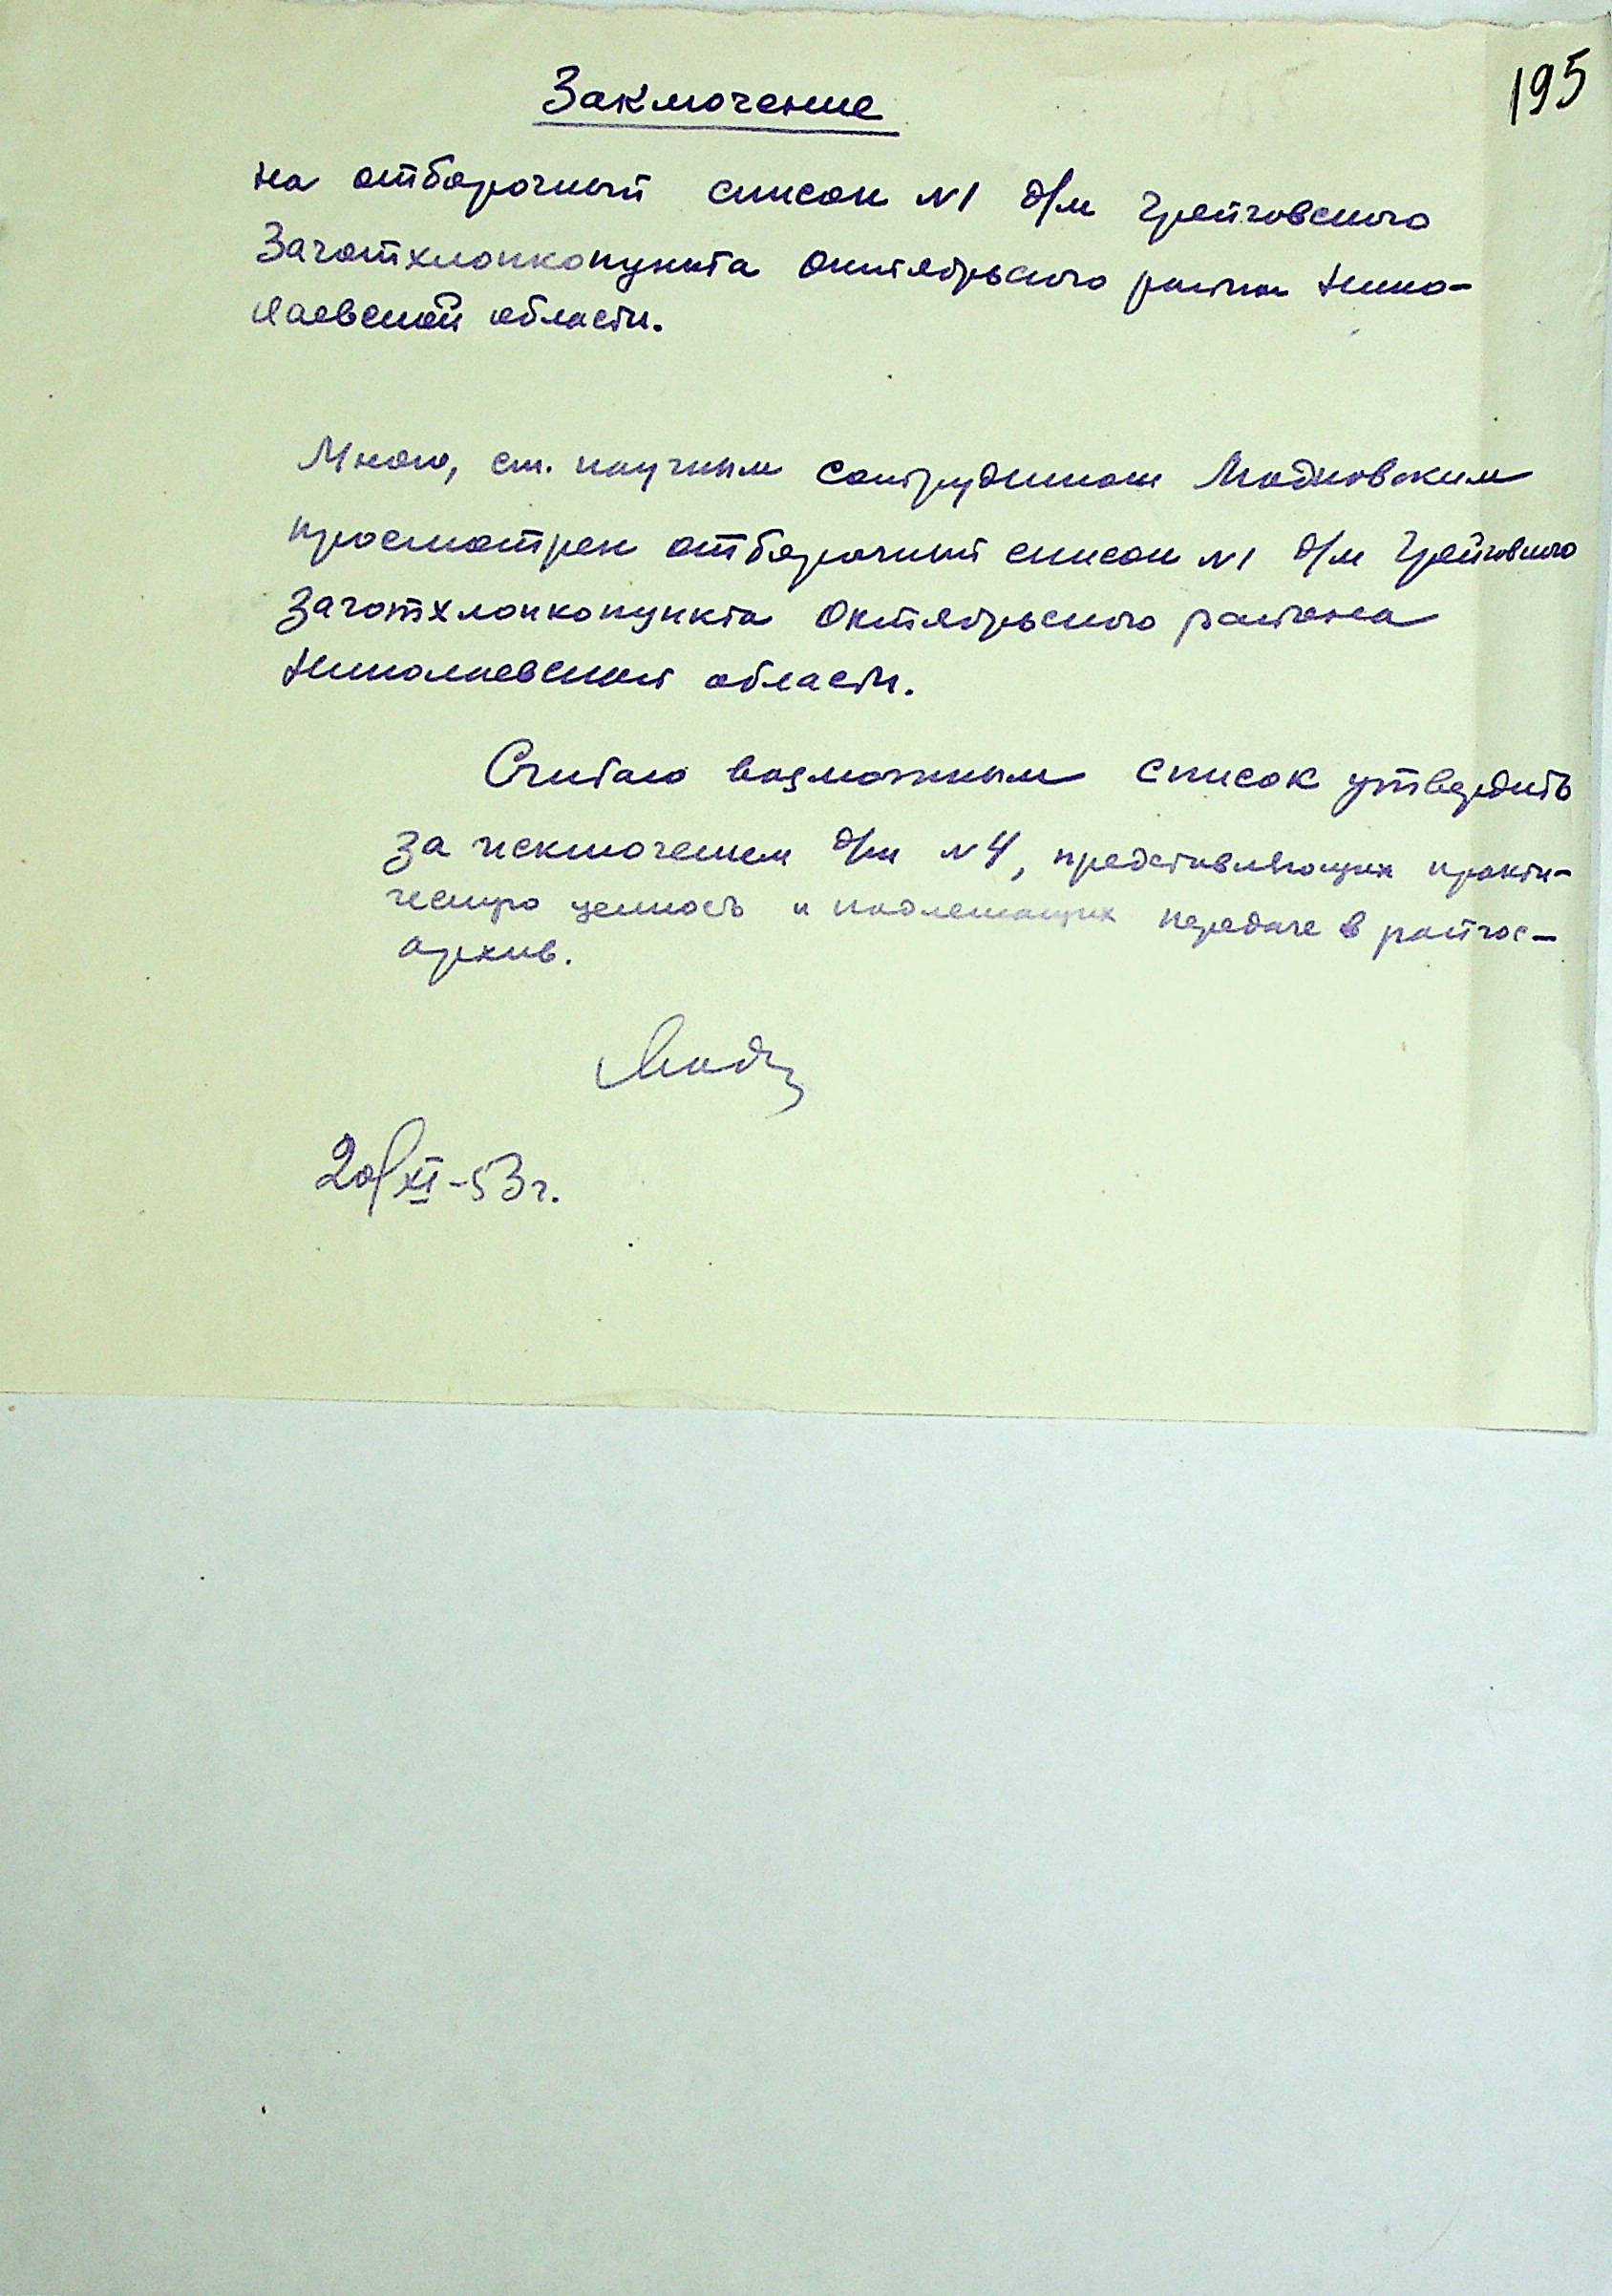 195
Заключение
на отборочный список №1 д/м Грейговского
Заготхлопкопункта Октябрьского района Нико-
лаевской области.
Мною, ст. научным сотрудником
просмотрен отборочный список №1 д/м Грейговского
Заготхлопкопункта Октябрьского района
Николаевской области.
Считаю возможным список утвердить
за исключением д/м №4, представляющих практи-
ческую ценность и подлежащих передаче в райгос-
архив.
20/XI-53г.